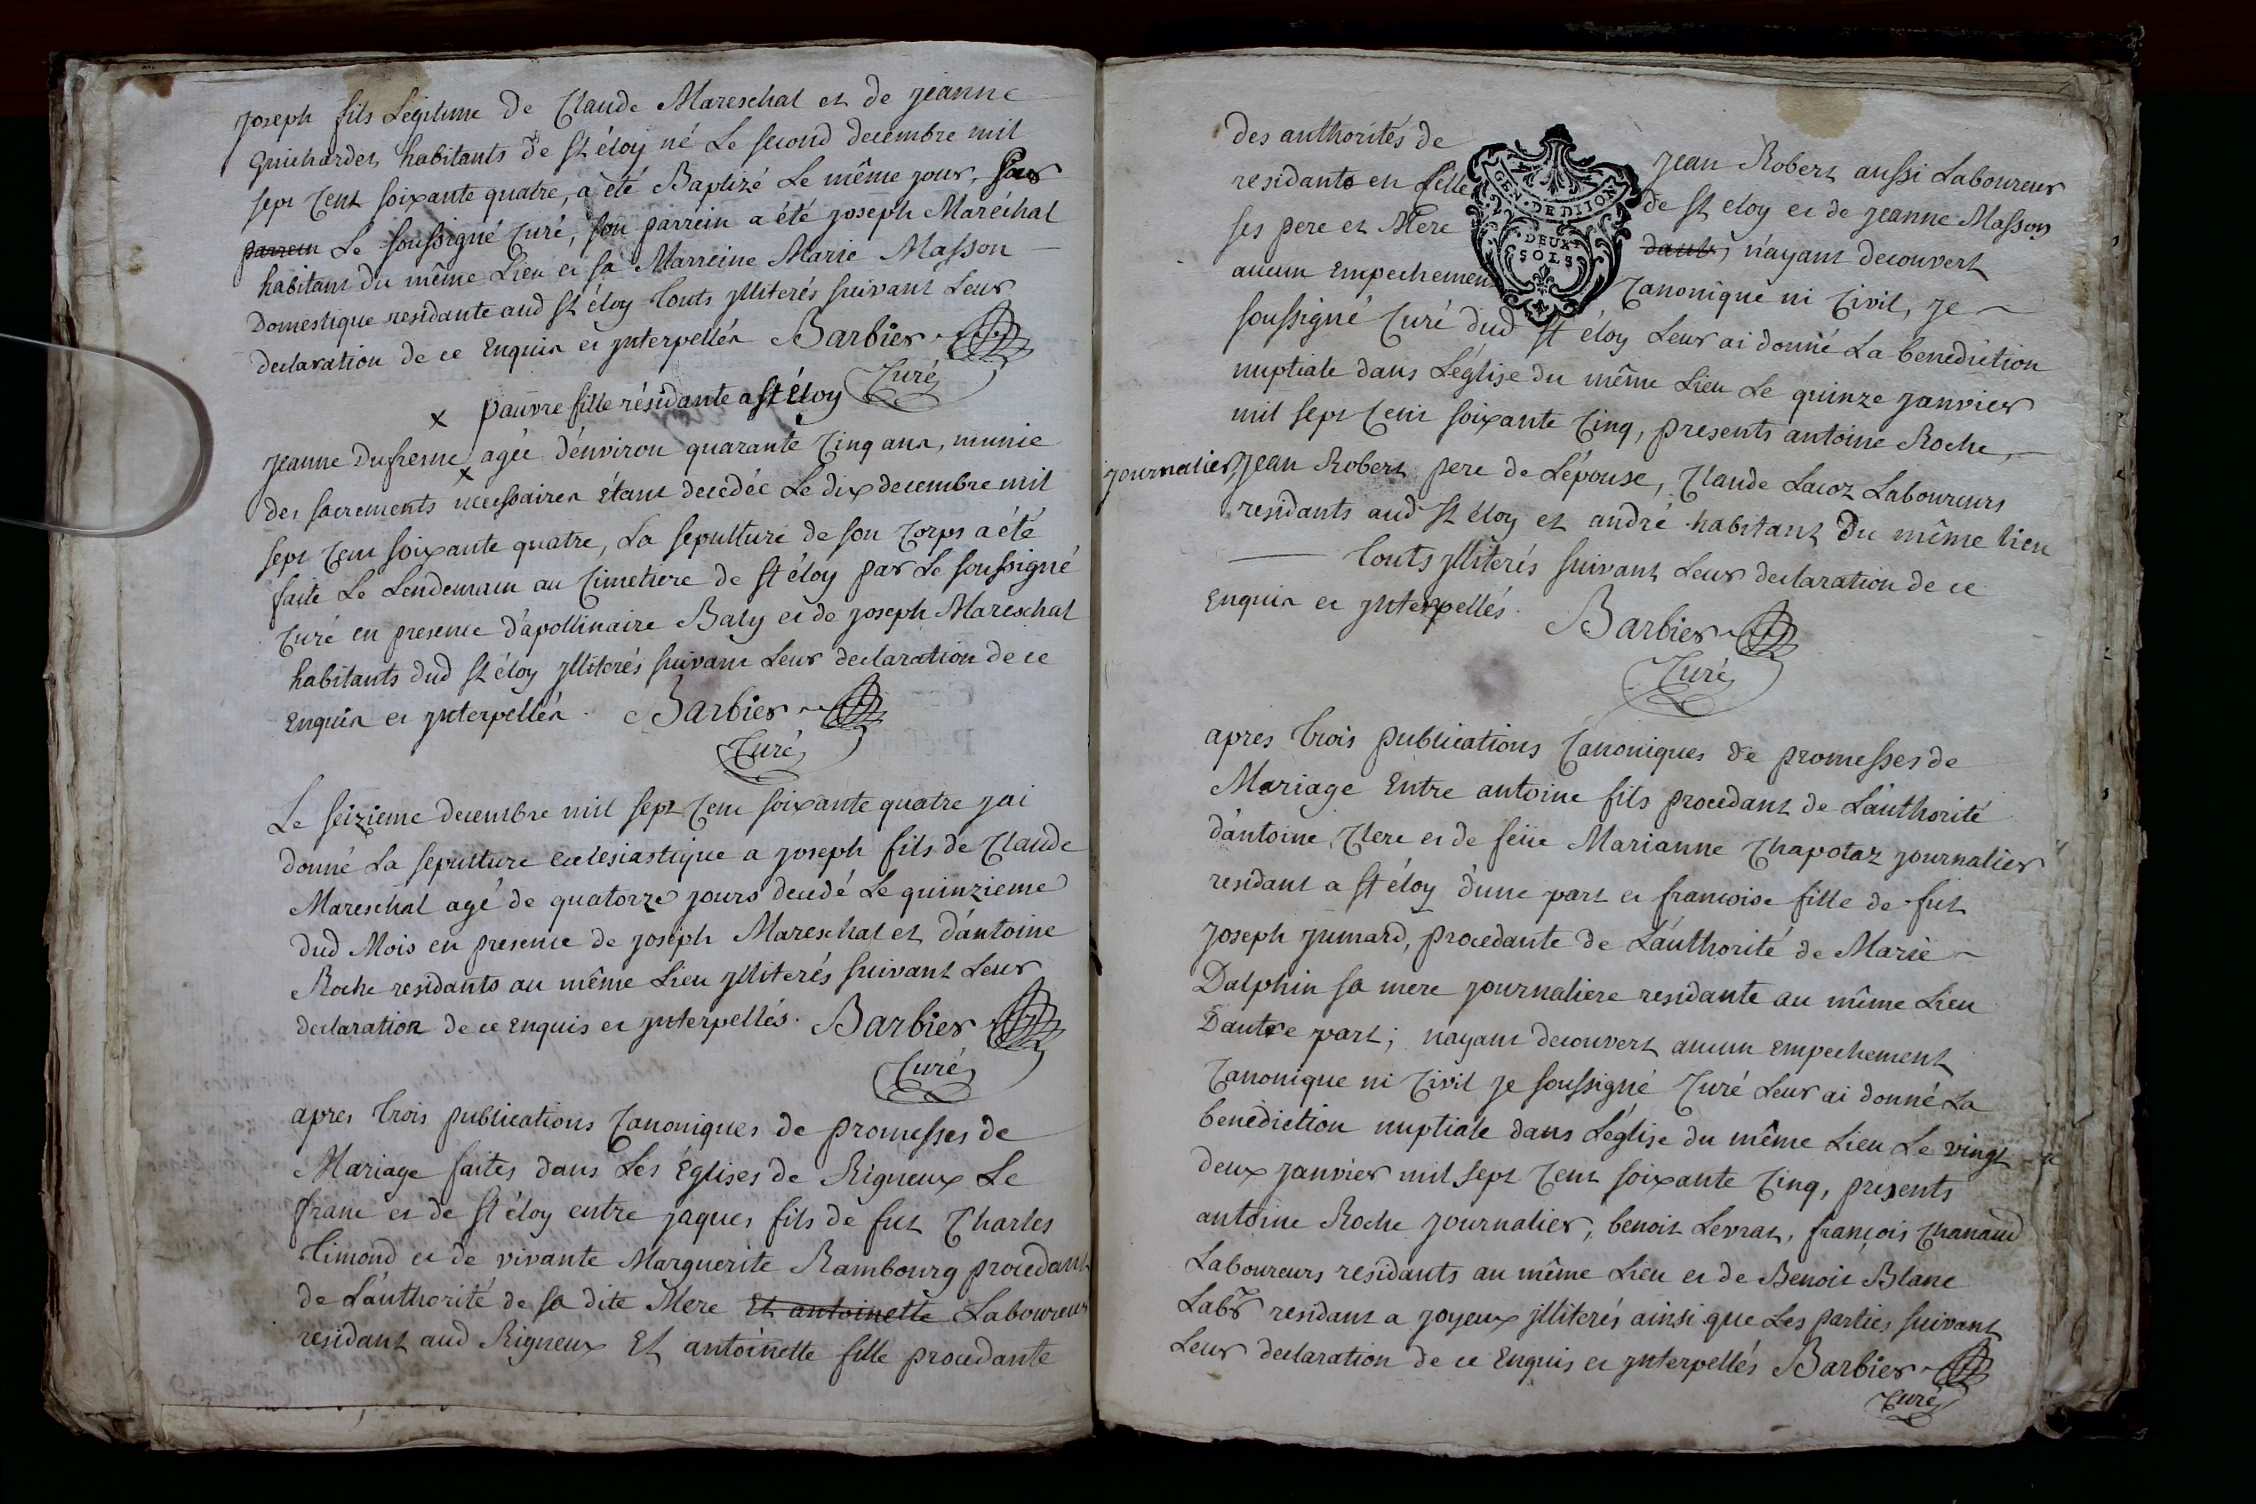 Joseph fils Legitime de Claude Mareschal et de jeanne
Guichardet habitants de St éloy né Le second decembre mil
sept Cent soixante quatre, a été Baptizé Le même jour, par
parrein Le soussigné Curé, son parrein a été joseph Maréchal
habitant du même Lieu et sa Marreine Marie Masson
Domestique residante aud St éloy touts jlliterés suivant Leur
declaration de ce Enquis et jnterpellés Barbier
Curé
x pauvre fille résidante a St Eloy
jeanne Dufresne x agée d'environ quarante Cinq ans, munie
des sacrements necessaires étant decedée Le dix decembre mil
sept Cent soixante quatre, La sepulture de son Corps a été
faite Le Lendemain au Cimetiere de St éloy par Le soussigné
Curé en presence d'apollinaire Baly et de joseph Mareschal
habitants dud St éloy jlliterés suivant Leur declaration de ce
Enquis et jnterpellés. Barbier
Curé
Le seizieme decembre mil sept Cent soixante quatre jai
donné La sepulture eclesiastique a joseph fils de Claude
Mareschal agé de quatorze jours decedé Le quinzieme
dud Mois en presence de joseph Mareschal et d'antoine
Roche residants au même Lieu jlliterés suivant Leur
declaration de ce enquis et jnterpellés. Barbier
Curé
apres trois publications Canoniques de promesses de
Mariage faites dans Les églises de Rigneux Le
franc et de St éloy entre jaques fils de fut Charles
Timond et de vivante Marguerite Rambourg procedant
de L'authorité de sa dite Mere Et antoinette Laboureur
residant aud Rigneux Et antoinette fille procedante
des authorités de jean Robert aussi Laboureur
residants en de St eloy et de jeanne Masson
ses pere et Mere n'ayant decouvert
aucun Empechement Canonique ni Civil, je
GEN. DE DIJON
DEUX
SOLS
soussigné Curé dud St éloy Leur ai donné La benediction
nuptiale dans L'église du même Lieu Le quinze janvier
mil sept Cent soixante Cinq, presents antoine Roche,
journalier, jean Robert pere de L'épouse, Claude Lacoz Laboureurs
residants aud St éloy et andré habitant Du même lieu
touts jlliterés suivant Leur declaration de ce
Enquis et jnterpellés. Barbier
Curé
apres trois publications Canoniques de promesses de
Mariage Entre antoine fils procedant de L'authorité
d'antoine Clere et de feüe Marianne Chapotaz journalier
residant a St éloy d'une part et francoise fille de fut
joseph jumard, procedante de L'authorité de Marie
Dalphin sa mere journaliere residante au même Lieu
D'autre part; nayant decouvert aucun empechement
Canonique ni Civil je soussigné Curé Leur ai donné La
benediction nuptiale dans L'église du même Lieu Le vingt
deux janvier mil sept Cent soixante Cinq, presents
antoine Roche journalier, benoit Levrat, françois Chanaud
Laboureurs residants au même Lieu et de Benoit Blanc
Labr residant a joyeux jlliterés ainsi que Les parties suivant
Leur declaration de ce Enquis et jnterpellés Barbier
Curé